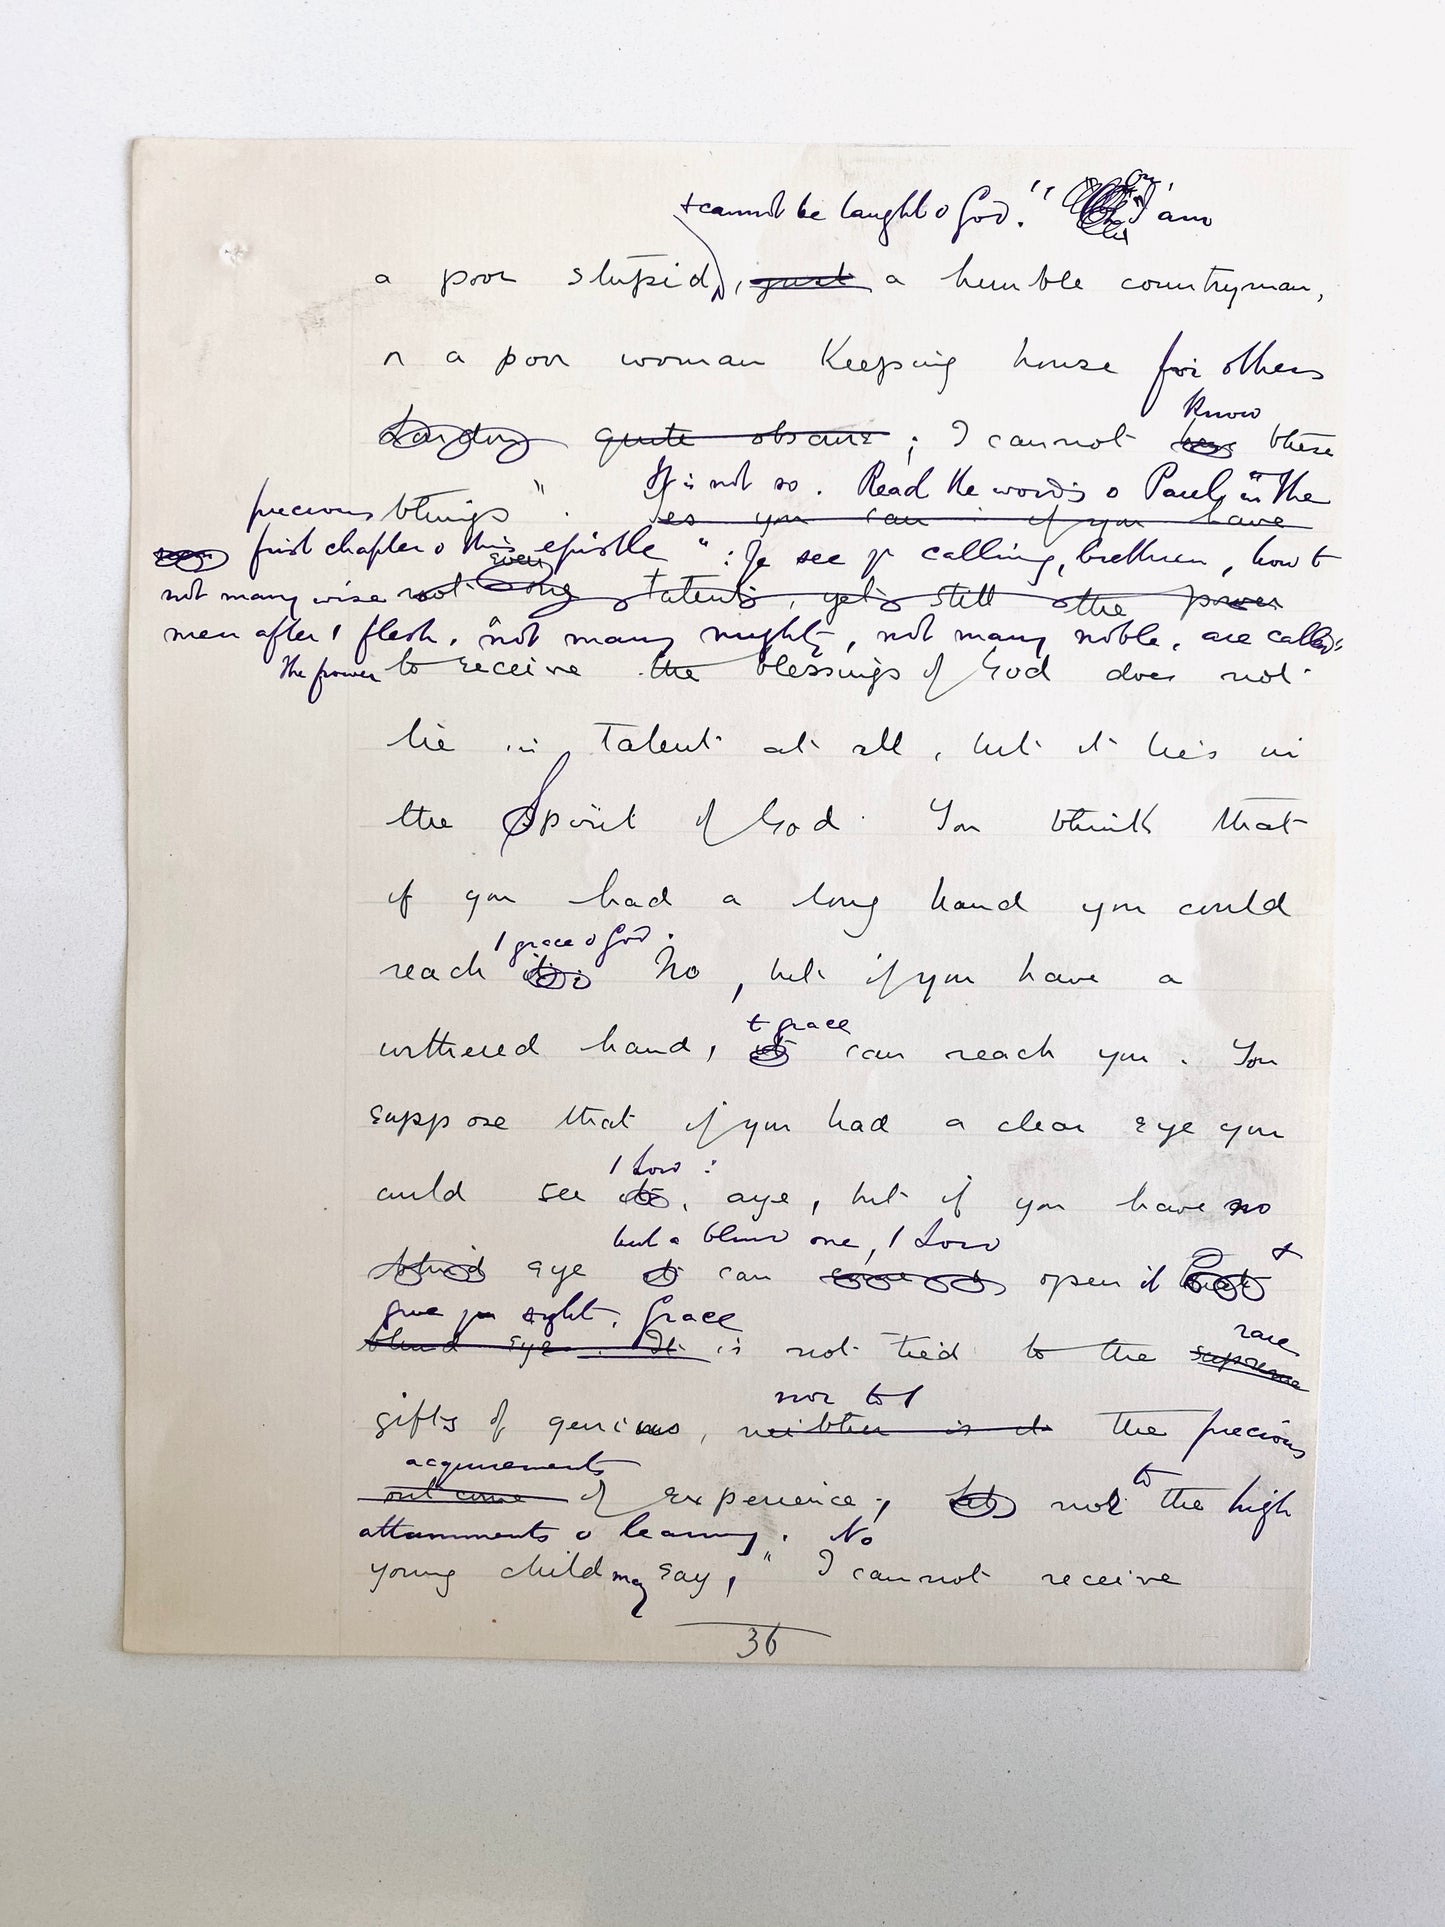 + cannot be taught o God." or, 'I am
a poor stupid, just a humble countryman,
r a poor woman keeping house for others
quite obscure ; I cannot know these
precious things " . It is not so. Read the words o Paul, in the
es you can if you have
first chapter o this epistle " : Ye see yr calling, brethren, how t
not many wise not even one talent, yet still the power
men after / flesh, not many mighty, not many noble, are called:
The power to receive the blessings of God does not
lie in talent at all, but it lies in
the Spirit of God. You think that
if you had a long hand you could
/ grace o God.
reach it. No, but if you have a
+ grace
withered hand, it can reach you. You
suppose that if you had a clear eye you
/ Lord :
could see it, aye, but if you have no
but a blind one, / Lord
blind eye it can come and open it But +
give you sight. Grace
blind eye. It is not tied to the supreme rare
nor to /
gifts of genius, neither is it the precious
acquirements
outcome of experience, not to the high
attainments o learning. No
young child may say, " I cannot receive
36